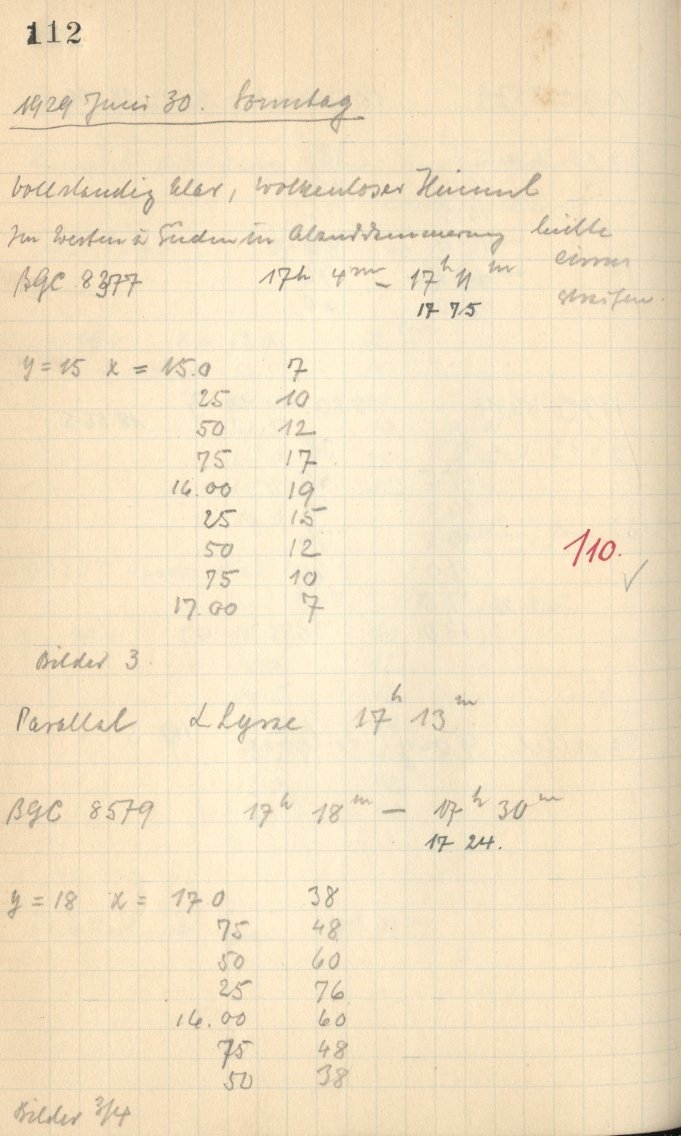 112
1929 Juni 30. Sonntag
Vollständig klar, wolkenloser Himmel
Im Westen u Süden in Abenddämmerung leichte
cirrus
streifen.
BGC 8377 17h 4m – 17h 11m
17 7.5
y = 15 x = 15.0 7
25 10
50 12
75 17
16.00 19
25 15
50 12
75 10
17.00 7
110.
Bilder 3
Parallel α Lyrae 17h 13m
BGC 8579 17h 18m – 17h 30m
17 24.
y = 18 x = 17 0 38
75 48
50 60
25 76
16.00 60
75 48
50 38
Bilder 3/4